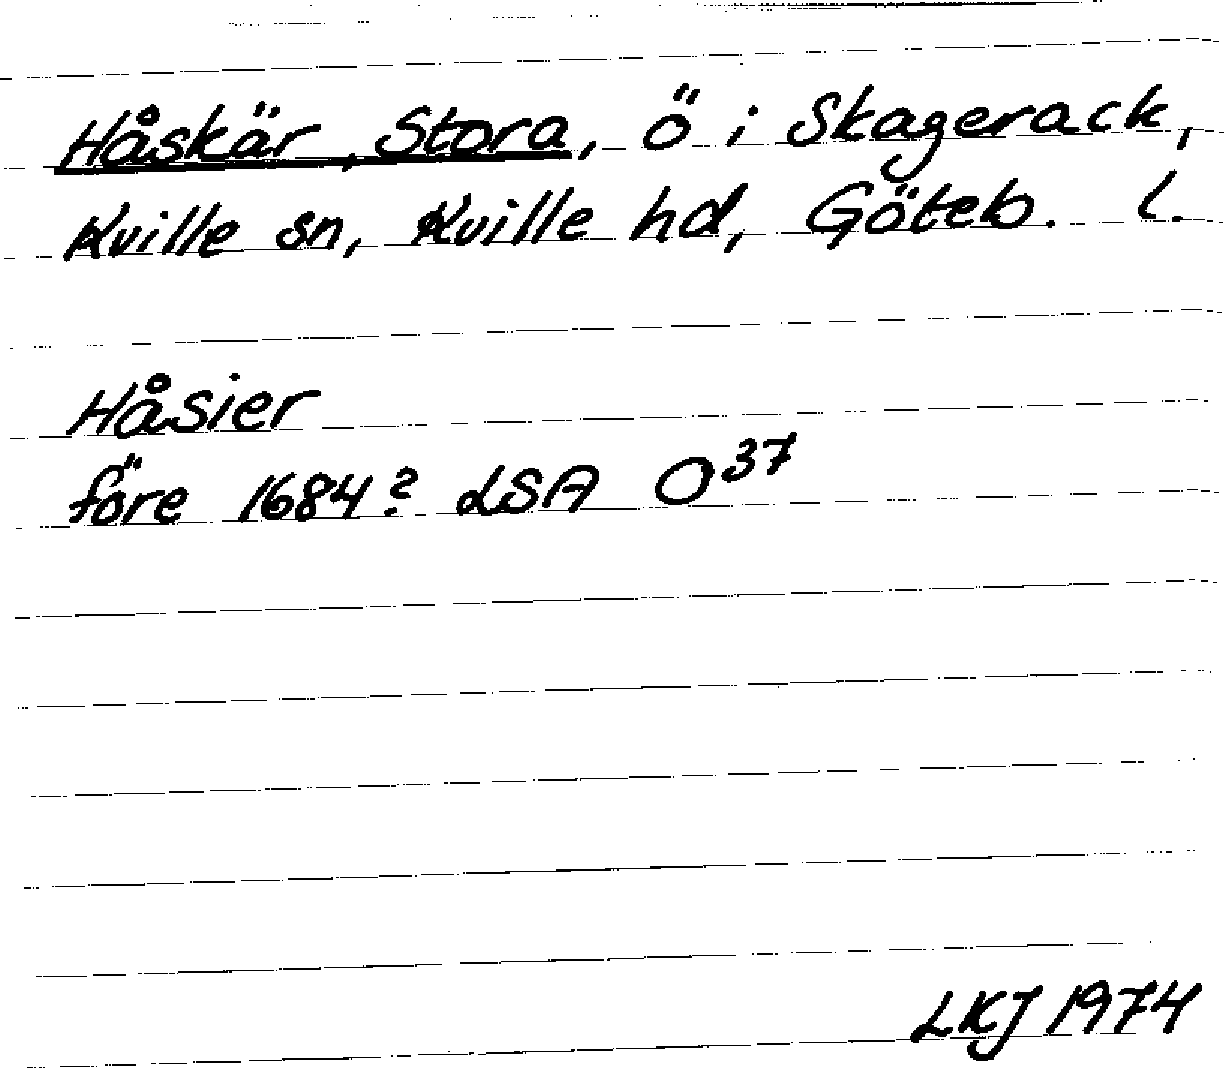 Håskär, Stora, ö i Skagerack,
Kville sn, Kville hd, Göteb. l.
Håsier
före 1684? LSA O³⁷
LKJ 1974